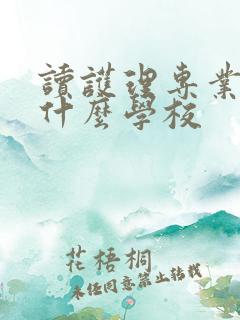 讀護理專業
什麼學校
花梧桐
未經同意禁止轉載